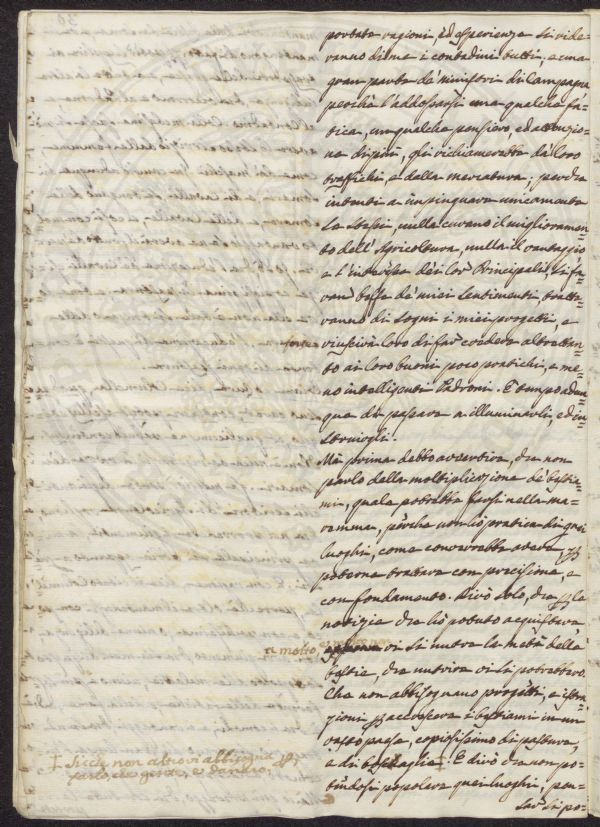 portate ragioni, ed esperienze si ride-
ranno di me i contadini tutti, e una
gran parte de' ministri di Campagna
perchè l'addossarsi una qualche fa-
tica, un qualche pensiero, ed attenzio-
ne di più, gli richiamerebbe da loro
traffichi, e della mercatura; perchè
intenti a impinguare unicamente
Se Stessi, nulla curano il miglioramen-
to dell'Agricoltura, nulla il vantaggio
e l'interesse de i lor Principali, si fa-
rann' beffe de' miei Sentimenti tratte-
ranno di sogni i miei progetti, e
forse
riuscirà loro di far credere altrettan-
to ai loro buoni poco pratichi, e me-
no intelligenti Padroni. È tempo adun-
que di passare a illuminarli, ed in-
struirgli.
Mà prima debbo avvertire, che non
parlo della moltiplicazione de' bestia-
mi, quale potrebbe farsi nella ma-
remma, perchè non hò pratica di quei
luoghi, come converrebbe avere p
poterne trattare con precisione, e
con fondamento. Dirò solo, che p le
notizie che hò potuto acquistare
a molto,
vi si nutre la metà delle
bestie, che nutrire vi si potrebbero.
Che non abbisognano progetti, e istru-
zioni p accrescere i bestiami in un
vasto paese, copiosissimo di pasture,
e di boscaglie ‡. E dirò che non po-
‡ Sicchè non altro vi abbisogna p
farlo, che gente, e danaro.
tendosi popolare quei luoghi, pen-
sar si po-